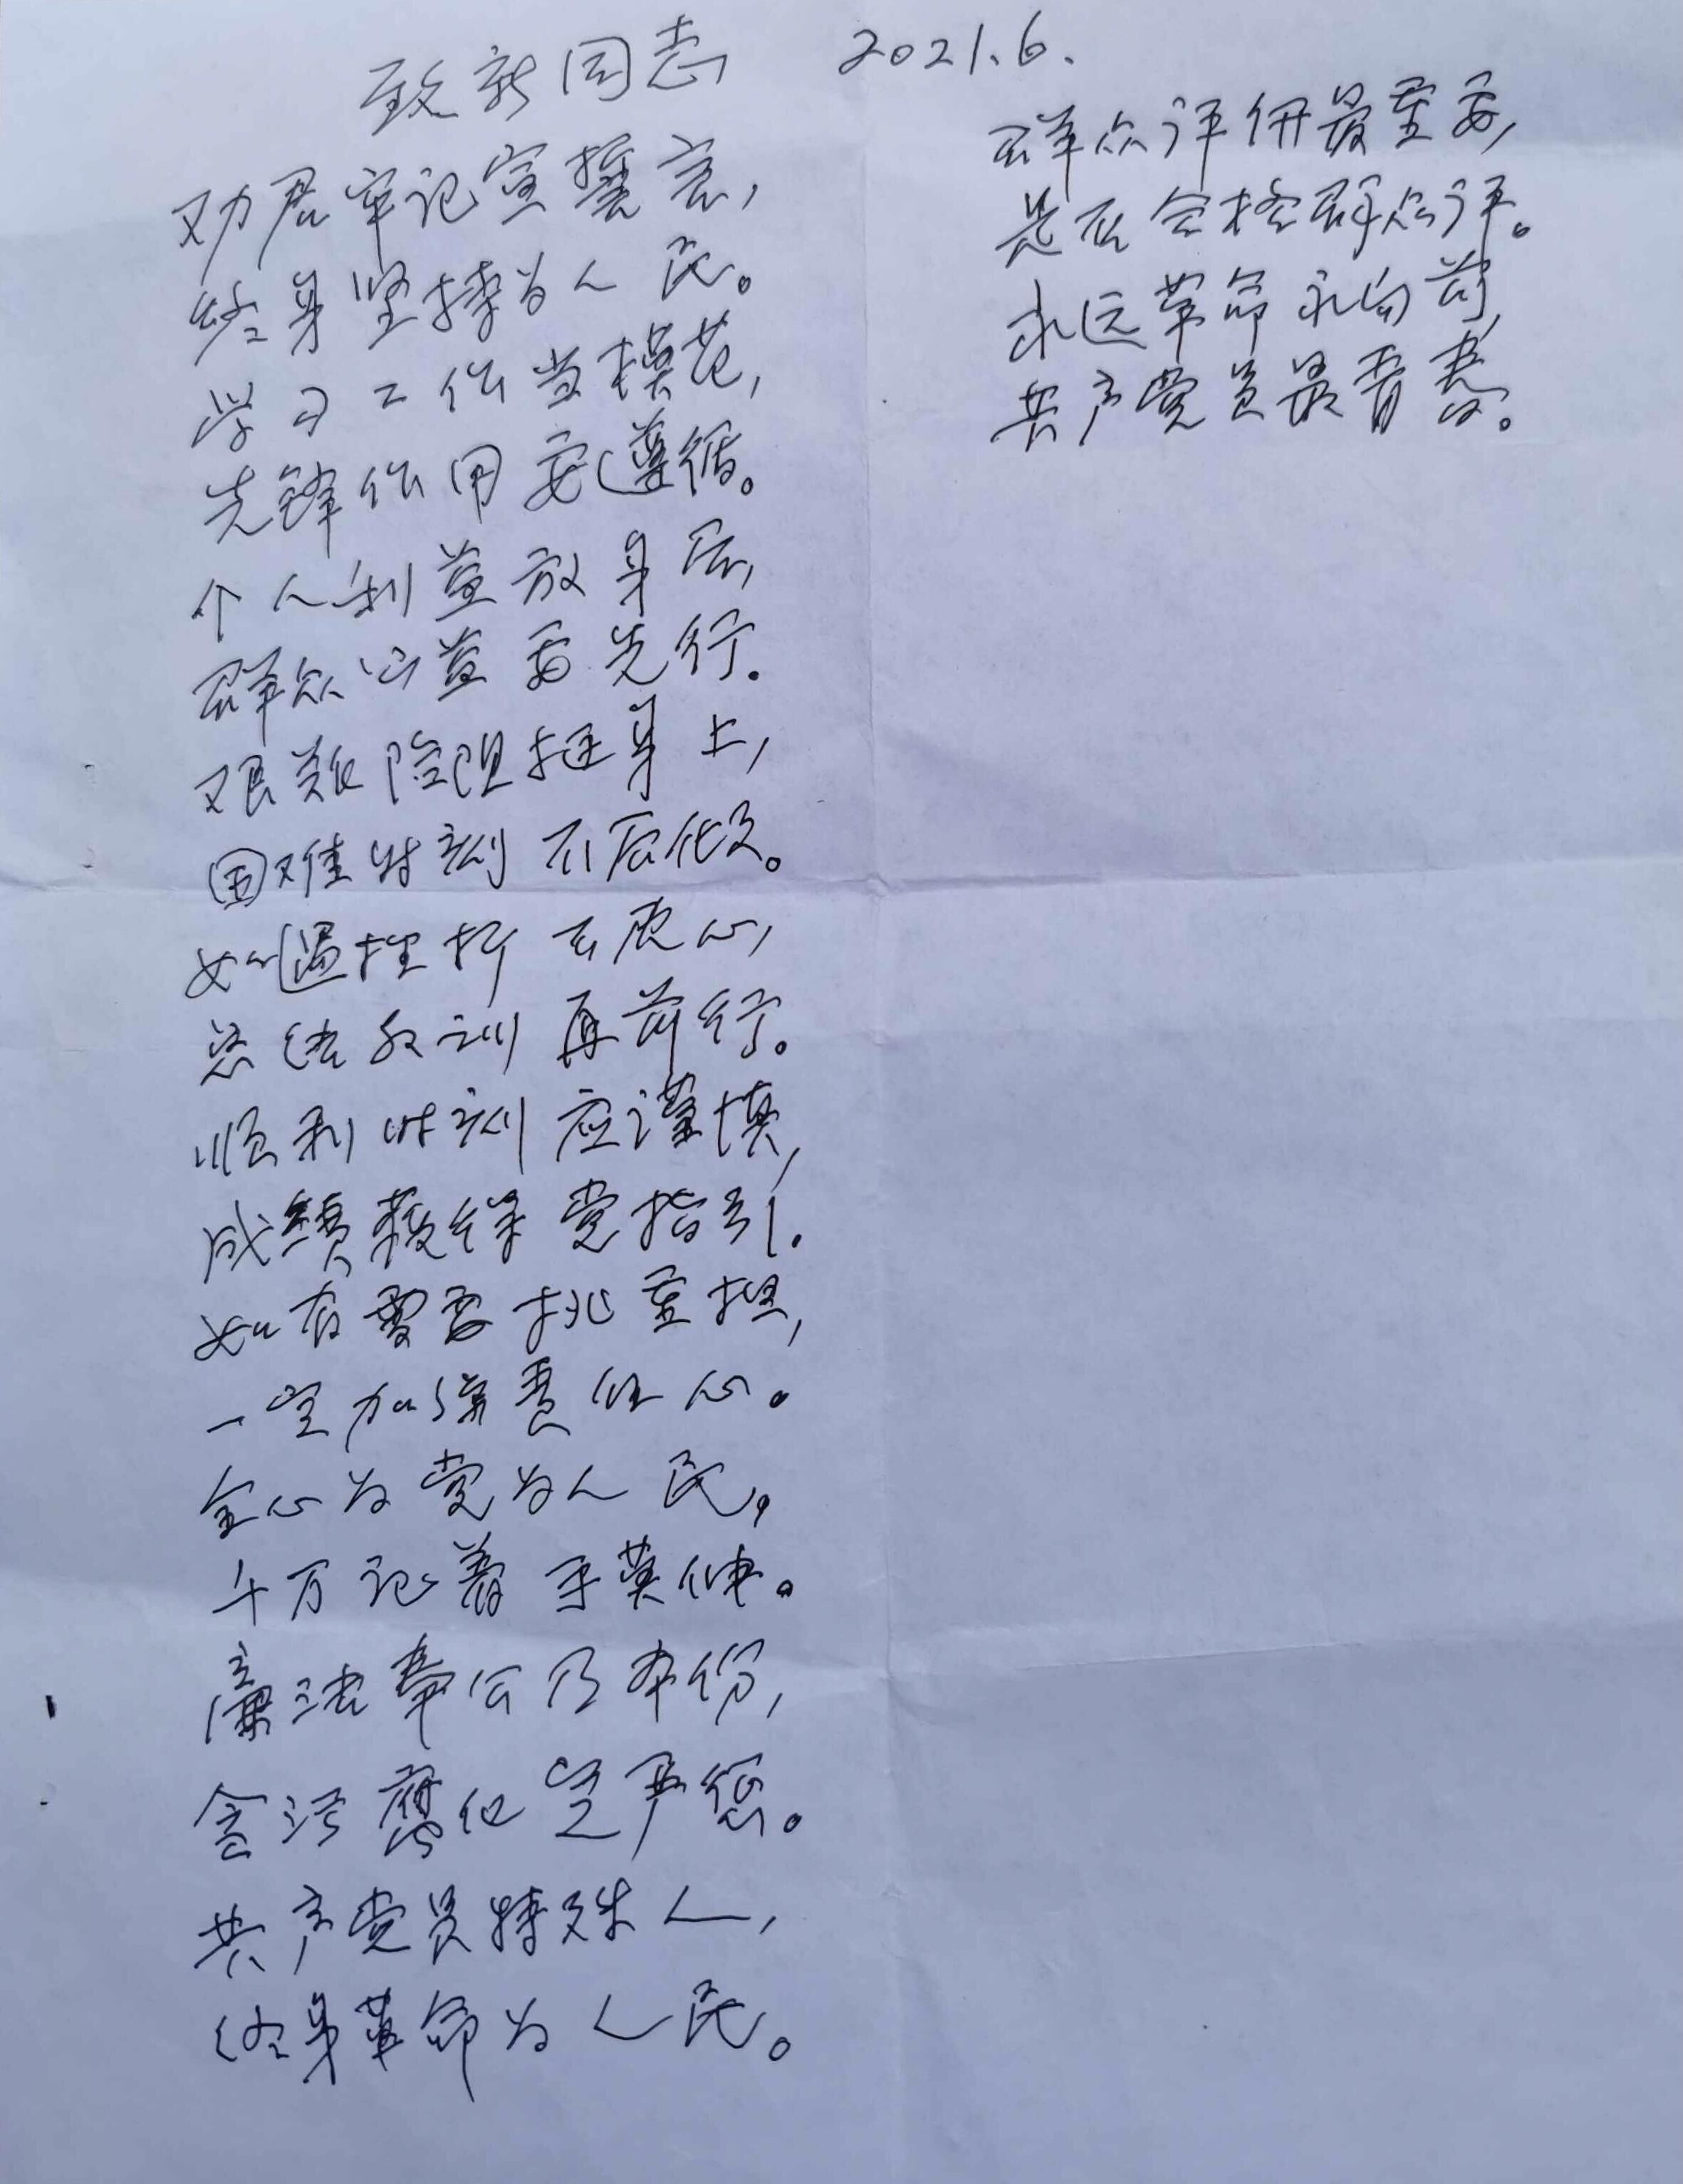 致新同志
2021.6.
劝君牢记宣誓言,
终身坚持为人民。
学习工作当模范,
先锋作用要遵循。
个人利益放身后,
群众公益要先行.
艰难险阻挺身上,
困难时刻不后代.
如遇挫折不灰心,
总结教训再前行。
顺利时刻应谨慎,
成绩获得党指引.
如有需要挑重担,
一定加强责任心。
全心为党为人民,
千万记着手莫伸。
廉洁奉公乃本份,
贪污腐化定严惩。
共产党员特殊人,
终身革命为人民。
群众评价最重要,
是否合格群众评。
永远革命永向前,
共产党员最青春。